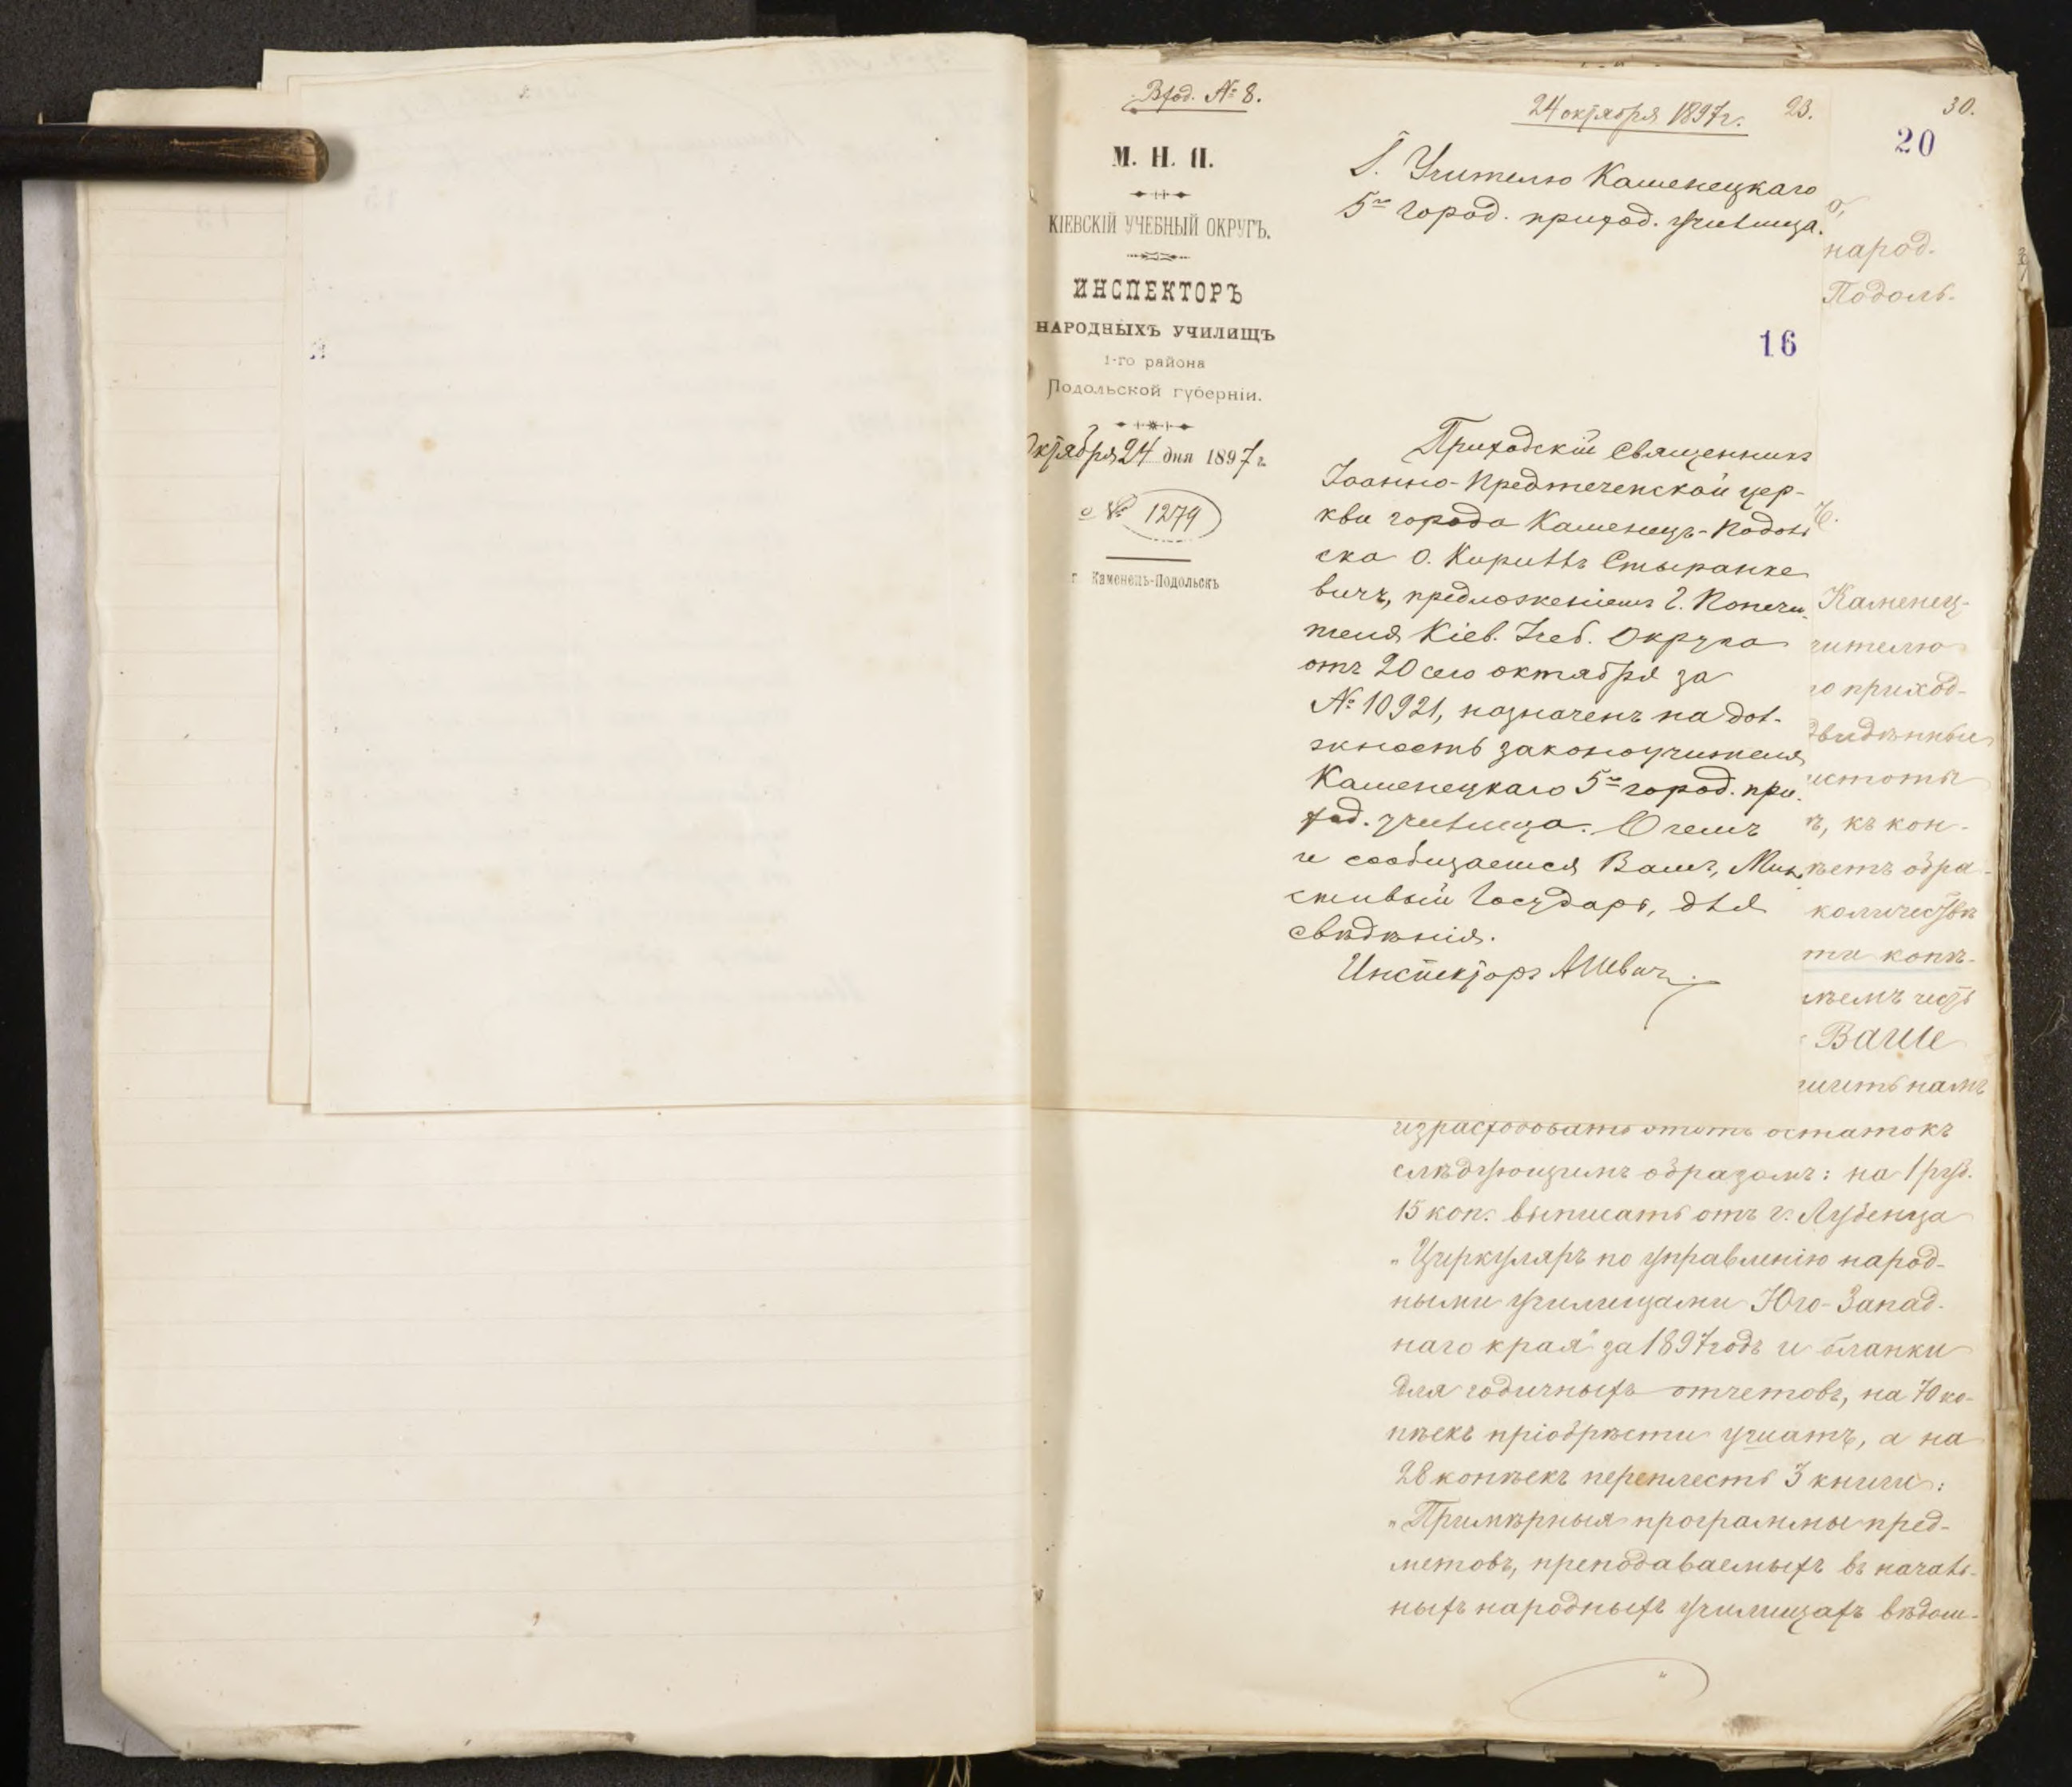 Вход. № 8.
24 октября 1897 г. 23.
30.
20
М. Н. П.
КІЕВСКІЙ УЧЕБНЫЙ ОКРУГЪ.
ИНСПЕКТОРЪ
НАРОДНЫХЪ УЧИЛИЩЪ
1-го района
Подольской губерніи.
Октября 24 дня 1897 г.
№ 1279
г. Каменецъ-Подольскъ
Г. Учителю Каменецкаго
5го город. приход. училища.
16
Приходскій Священникъ
Іоанно-Предтеченской цер-
кви города Каменецъ-Подоль
ска О. Кириллъ Стыранке
вичъ, предложеніемъ Г. Попечи
теля Кіев. Учеб. Округа
отъ 20 сего октября за
№ 10921, назначенъ на дол-
жность законоучителя
Каменецкаго 5го город. при.
ход. училища. О чемъ
и сообщается Вамъ, Мил
стивый Государь, для
свѣдѣнія.
Инспекторъ
народ.
Подоль.
Каменец-
чителю
го приход-
истоты
ъ, къ кон-
ѣетъ обра-
количествѣ
ти копѣ-
ѣемъ честь
Ваше
шить намъ
израсходовать этотъ остатокъ
слѣдующимъ образомъ: на 1 руб.
15 коп. выписать отъ г. Лубенца
„Циркуляръ по управленію народ-
ными училищами Юго-Запад-
наго края" за 1897 годъ и бланки
для годичныхъ отчетовъ, на 70 ко-
пѣекъ пріобрѣсти а на
28 копѣекъ переплесть 3 книги:
„Примѣрныя программы пред-
метовъ, преподаваемыхъ въ началь-
ныхъ народныхъ училищахъ вѣдом-